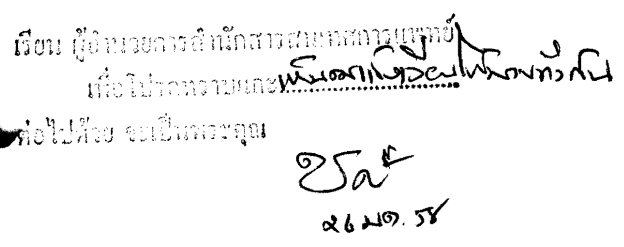 เรียน ผู้อำนวยการสำนักสารสนเทศการแพทย์
เพื่อโปรดทราบและเห็นควรแจ้งเวียนให้ทราบทั่วกัน
ต่อไปด้วย จะเป็นพระคุณ
๒๖ มค. ๕๘